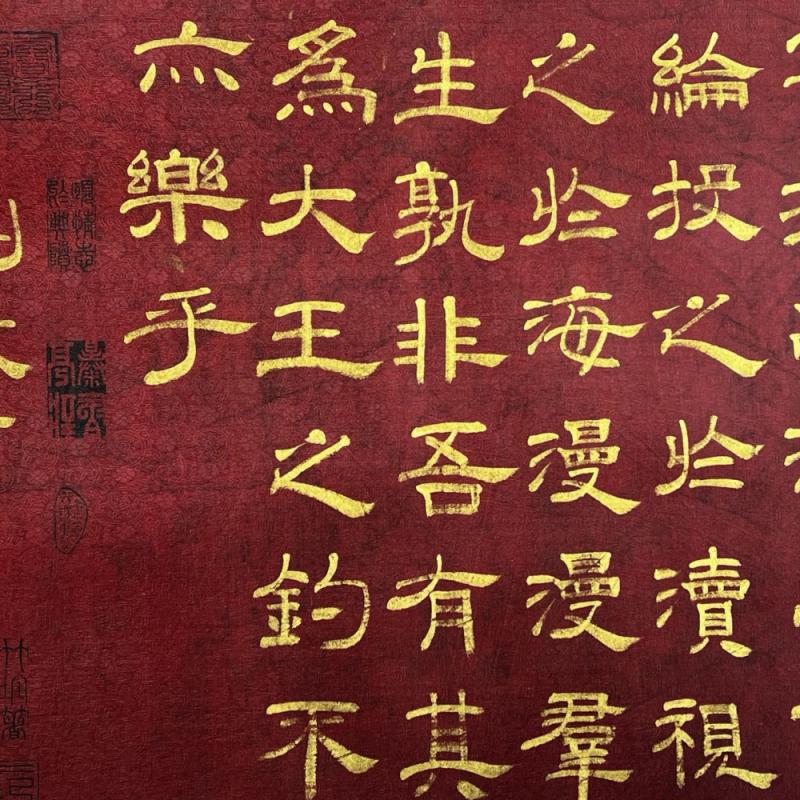 綸投之於瀆視
之於海漫漫羣
生孰非吾有其
爲大王之釣不
亦樂乎